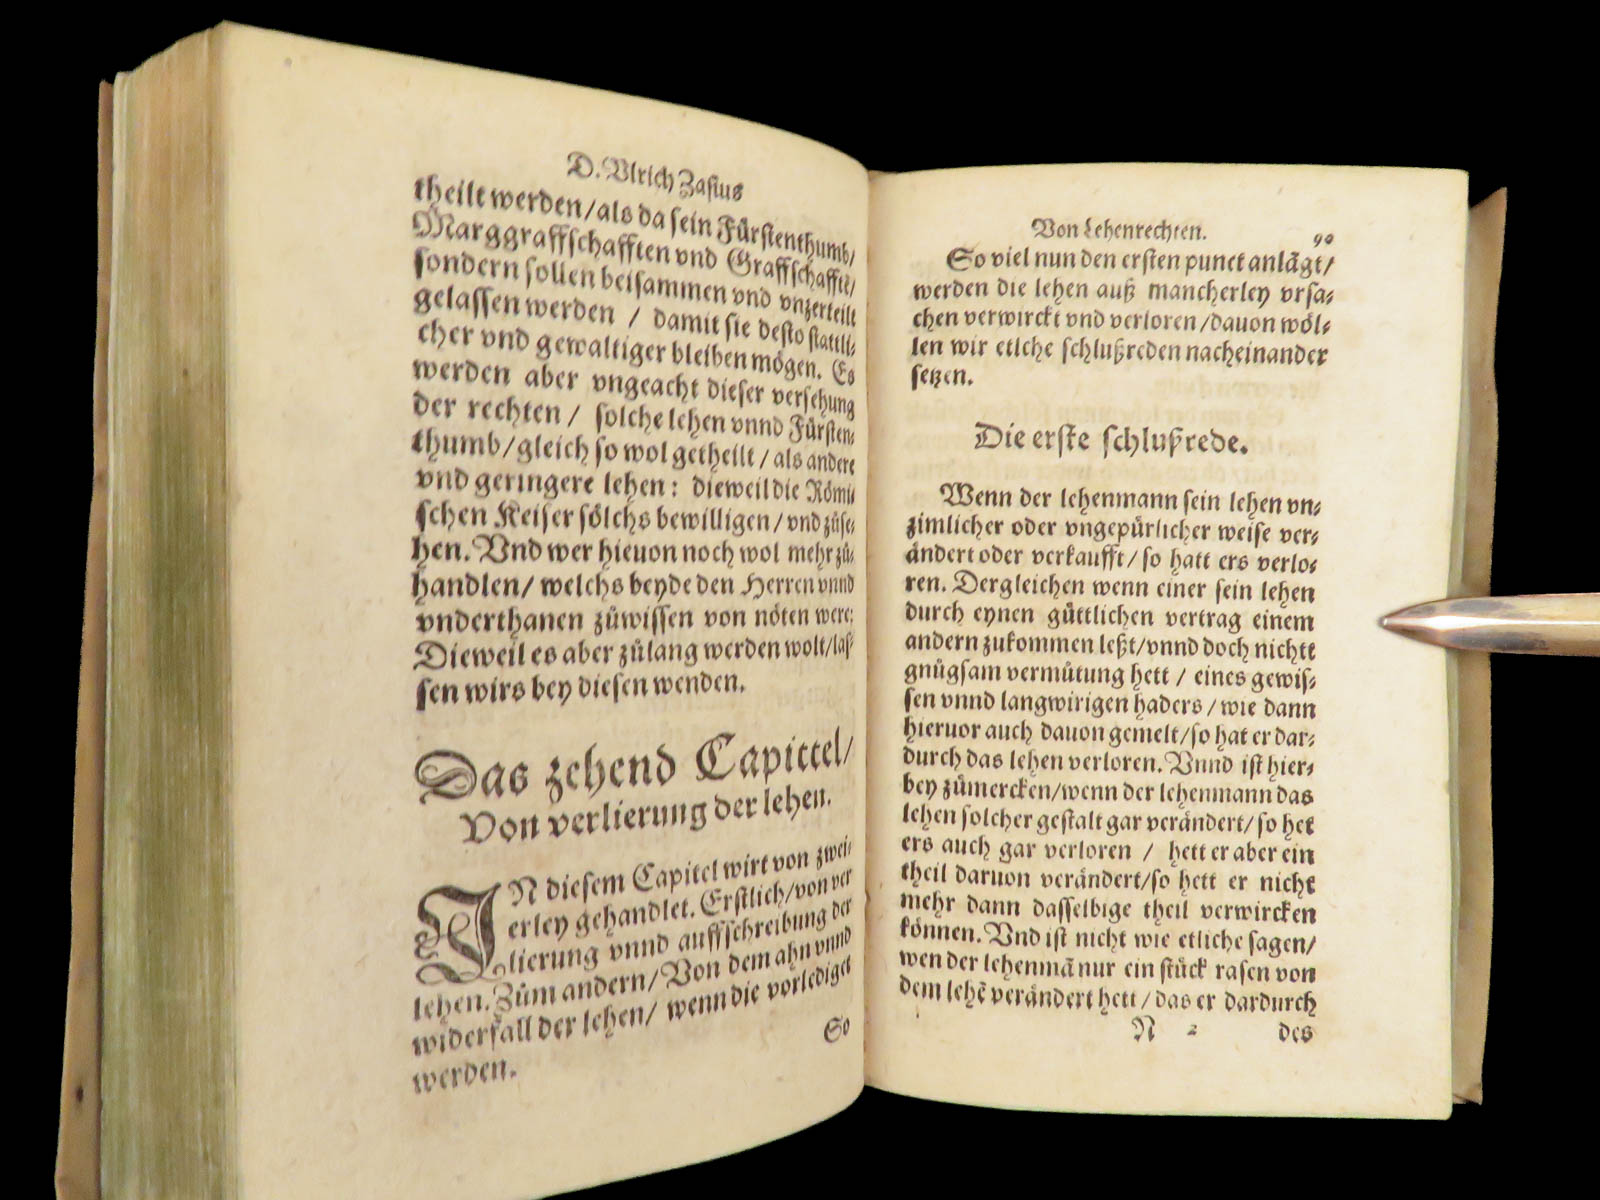 D. Vlrich Zasius
theilt werden/als da sein Fürstenthumb/
Marggraffschafften vnd Graffschafftē/
sondern sollen beisammen vnd vnzerteilt
gelassen werden / damit sie desto stattli-
cher vnd gewaltiger bleiben mögen. Es
werden aber vngeacht dieser versehung
der rechten / solche lehen vnnd Fürsten-
thumb/gleich so wol getheilt / als andere
vnd geringere lehen: dieweil die Römi-
schen Keiser sölchs bewilligen/vnd zůse-
hen. Vnd wer hieuon noch wol mehr zů-
handlen/ welchs beyde den Herren vnnd
vnderthanen zůwissen von nöten were:
Dieweil es aber zůlang werden wolt/las-
sen wirs bey diesen wenden.
Das zehend Capittel/
Von verlierung der lehen.
IN diesem Capitel wirt von zwei-
erley gehandlet. Erstlich/von ver
lierung vnnd auffschreibung der
lehen. Zům andern/ Von dem ahn vnnd
widerfall der lehen/ wenn die vorlediget
werden.
So
Von Lehenrechten. 90
So viel nun den ersten punct anlāgt/
werden die lehen auß mancherley vrsa-
chen verwirckt vnd verloren /dauon wöl-
len wir etlche schlußreden nacheinander
setzen.
Die erste schlußrede.
Wenn der lehenmann sein lehen vn-
zimlicher oder vngepürlicher weise ver-
ändert oder verkaufft/so hatt ers verlo-
ren. Dergleichen wenn einer sein lehen
durch eynen güttlichen vertrag einem
andern zukommen leßt/vnnd doch nichtt
gnůgsam vermůtung hett / eines gewis-
sen vnnd langwirigen haders / wie dann
hieruor auch dauon gemelt/so hat er dar-
durch das lehen verloren. Vnnd ist hier-
bey zůmercken/wenn der lehenmann das
lehen solcher gestalt gar verändert/so het
ers auch gar verloren / hett er aber ein
theil daruon verändert/so hett er nicht
mehr dann dasselbige theil verwircken
können. Vnd ist nicht wie etliche sagen/
wen der lehenmā nur ein stück rasen von
dem lehē verändert hett / das er dardurch
N 2 des